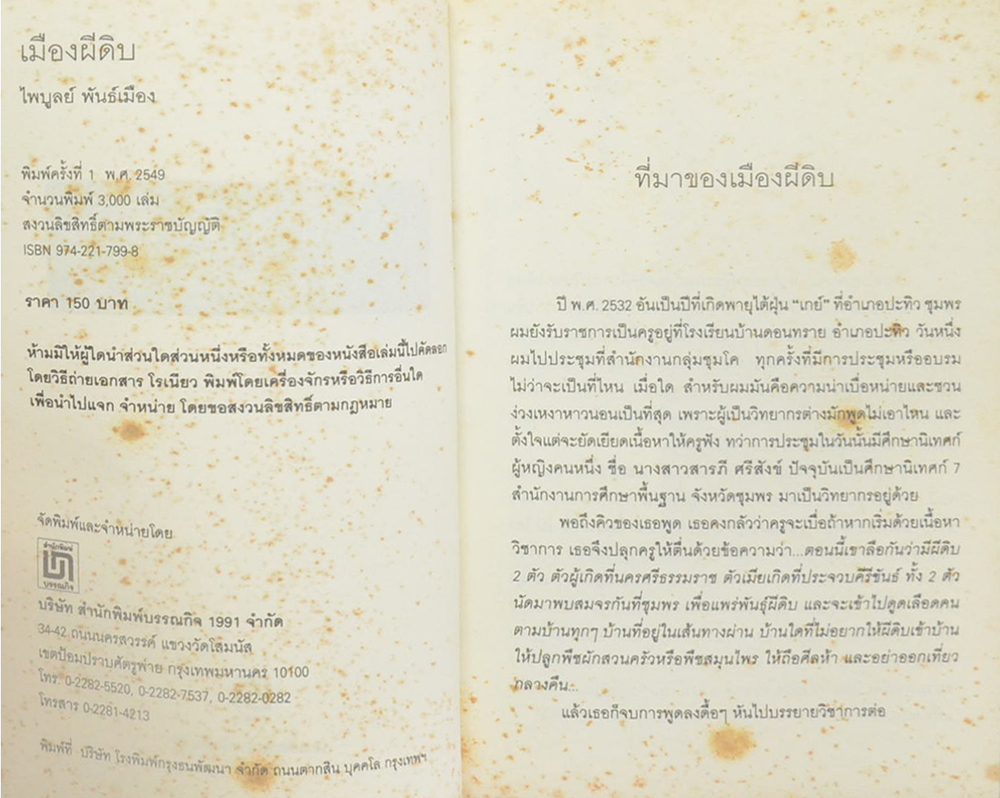 เมืองผีดิบ
ไพบูลย์ พันธ์เมือง
พิมพ์ครั้งที่ 1 พ.ศ. 2549
จำนวนพิมพ์ 3,000 เล่ม
สงวนลิขสิทธิ์ตามพระราชบัญญัติ
ISBN 974-221-799-8
ราคา 150 บาท
ห้ามมิให้ผู้ใดนำส่วนใดส่วนหนึ่งหรือทั้งหมดของหนังสือเล่มนี้ไปคัดลอก
โดยวิธีถ่ายเอกสาร โรเนียว พิมพ์โดยเครื่องจักรหรือวิธีการอื่นใด
เพื่อนำไปแจก จำหน่าย โดยขอสงวนลิขสิทธิ์ตามกฎหมาย
จัดพิมพ์และจำหน่ายโดย
สำนักพิมพ์
บรรณกิจ
บริษัท สำนักพิมพ์บรรณกิจ 1991 จำกัด
34-42 ถนนนครสวรรค์ แขวงวัดโสมนัส
เขตป้อมปราบศัตรูพ่าย กรุงเทพมหานคร 10100
โทร. 0-2282-5520, 0-2282-7537, 0-2282-0282
โทรสาร 0-2281-4213
พิมพ์ที่ บริษัท โรงพิมพ์กรุงธนพัฒนา จำกัด ถนนตากสิน บุคคโล กรุงเทพฯ
ที่มาของเมืองผีดิบ
ปี พ.ศ. 2532 อันเป็นปีที่เกิดพายุไต้ฝุ่น "เกย์" ที่อำเภอปะทิว ชุมพร
ผมยังรับราชการเป็นครูอยู่ที่โรงเรียนบ้านดอนทราย อำเภอปะทิว วันหนึ่ง
ผมไปประชุมที่สำนักงานกลุ่มชุมโค ทุกครั้งที่มีการประชุมหรืออบรม
ไม่ว่าจะเป็นที่ไหน เมื่อใด สำหรับผมมันคือความน่าเบื่อหน่ายและชวน
ง่วงเหงาหาวนอนเป็นที่สุด เพราะผู้เป็นวิทยากรต่างมักพูดไม่เอาไหน และ
ตั้งใจแต่จะยัดเยียดเนื้อหาให้ครูฟัง ทว่าการประชุมในวันนั้นมีศึกษานิเทศก์
ผู้หญิงคนหนึ่ง ชื่อ นางสาวสารภี ศรีสังข์ ปัจจุบันเป็นศึกษานิเทศก์ 7
สำนักงานการศึกษาพื้นฐาน จังหวัดชุมพร มาเป็นวิทยากรอยู่ด้วย
พอถึงคิวของเธอพูด เธอคงกลัวว่าครูจะเบื่อถ้าหากเริ่มด้วยเนื้อหา
วิชาการ เธอจึงปลุกครูให้ตื่นด้วยข้อความว่า...ตอนนี้เขาลือกันว่ามีผีดิบ
2 ตัว ตัวผู้เกิดที่นครศรีธรรมราช ตัวเมียเกิดที่ประจวบคีรีขันธ์ ทั้ง 2 ตัว
นัดมาพบสมจรกันที่ชุมพร เพื่อแพร่พันธุ์ผีดิบ และจะเข้าไปดูดเลือดคน
ตามบ้านทุกๆ บ้านที่อยู่ในเส้นทางผ่าน บ้านใดที่ไม่อยากให้ผีดิบเข้าบ้าน
ให้ปลูกพืชผักสวนครัวหรือพืชสมุนไพร ให้ถือศีลห้า และอย่าออกเที่ยว
กลางคืน...
แล้วเธอก็จบการพูดลงดื้อๆ หันไปบรรยายวิชาการต่อ